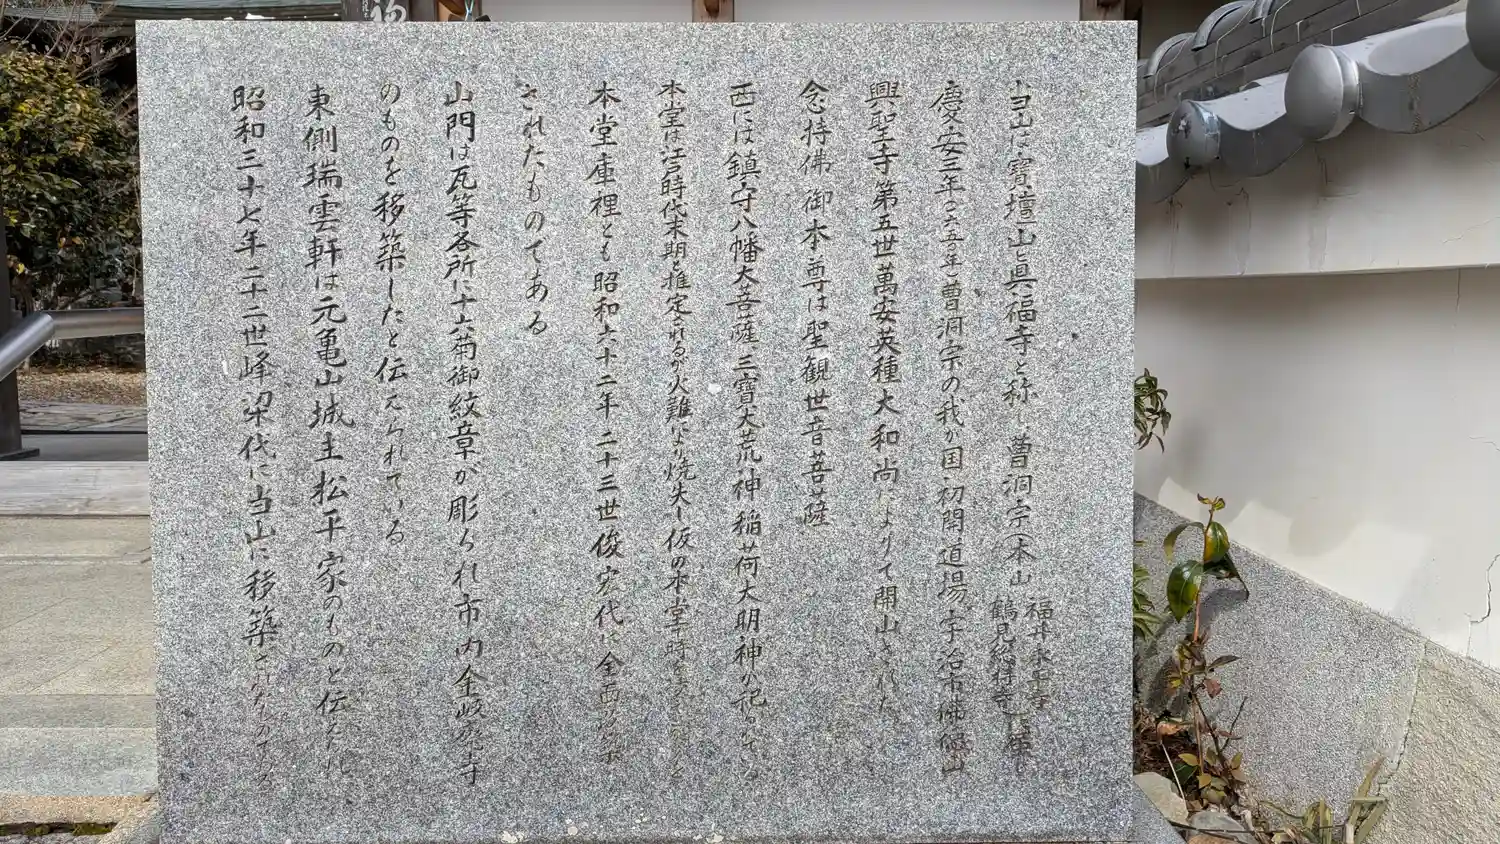 当山は寳壇山と眞福寺と称し、曹洞宗(本山 福井永平寺 鶴見総持寺
慶安三年(一六五〇年)曹洞宗の我が国初開道場宇治市佛徳山
興聖寺第五世萬安英種大和尚によりて開山された
念持佛御本尊は聖観世音菩薩
西には鎮守八幡大菩薩、三寶大荒神、稲荷大明神が祀
本堂は江戸時代末期と推定されるが火難により焼失し仮の本堂
本堂庫裡とも昭和六十二年二十三世俊宏代に全面
されたものである
山門は瓦等各所に十六菊御紋章が彫られ市内金岐
のものを移築したと伝えられている
東側瑞雲軒は元亀山城主松平家のものと伝えられ
昭和三十七年二十二世峰梁代に当山に移築